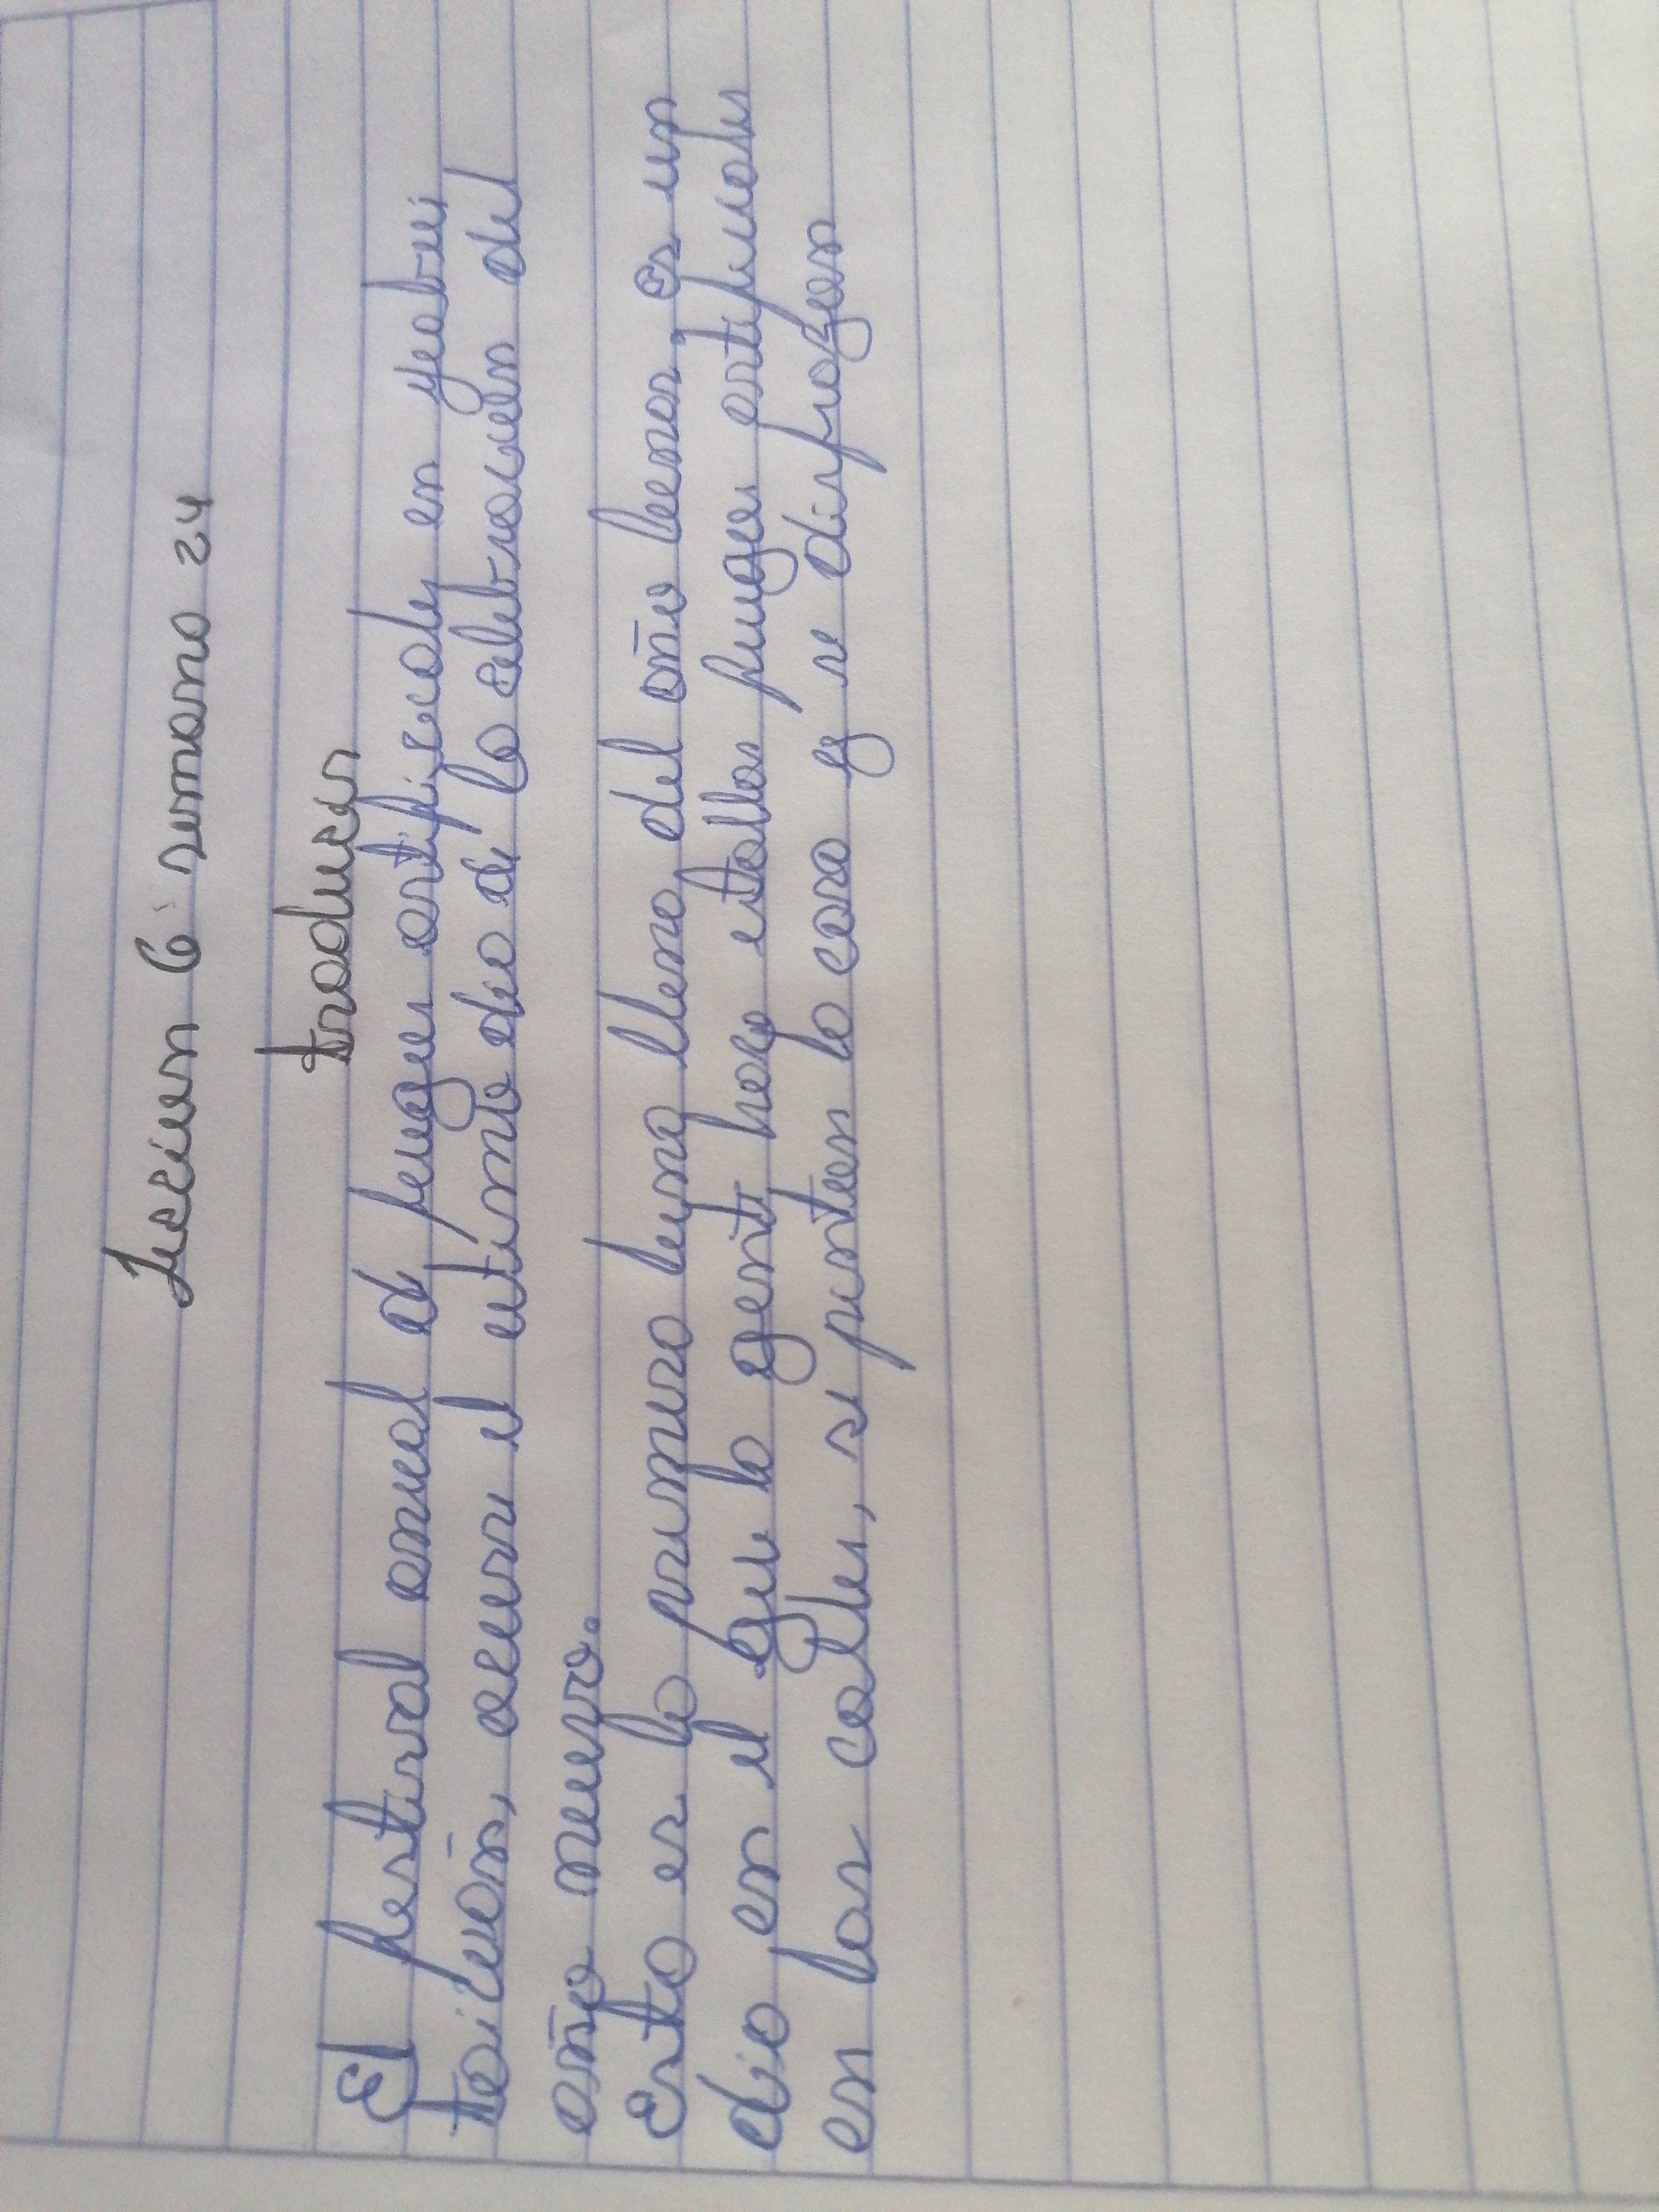 Leccion 6 semana 24
traducar
El festival anual de fuegos artificiales en yeabui
taiwán, ocurre el ultimo dia de la celebracion del
año nuevo.
Esta es la primera luna llena del año lunar, es un
dia en el que la gente hace estallar fuegos artificiales
en las calles, se pintan la cara y se disfrazan